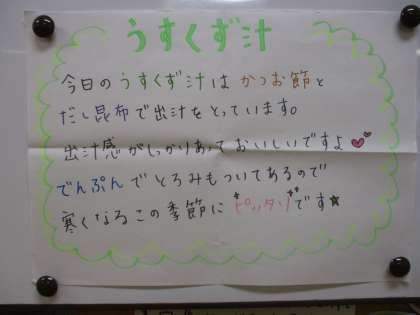 うすくず汁
今日のうすくず汁はかつお節と
だし昆布で出汁をとっています。
出汁感がしっかりあっておいしいですよ
でんぷんでとろみもついてあるので
寒くなるこの季節に"ピッタリ"です